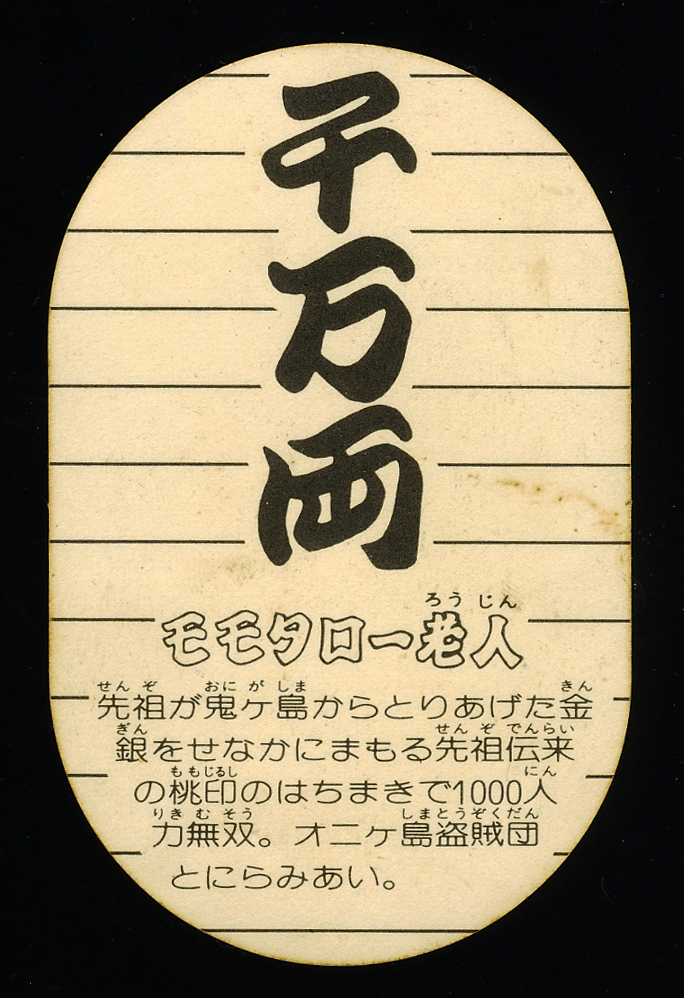 千万両
ろうじん
モモタロー老人
せんぞ おにがしま きん
先祖が鬼ケ島からとりあげた金
ぎん せんぞでんらい
銀をせなかにまもる先祖伝来
ももじるし にん
の桃印のはちまきで1000人
りきむそう しまとうぞくだん
力無双。オニヶ島盗賊団
とにらみあい。